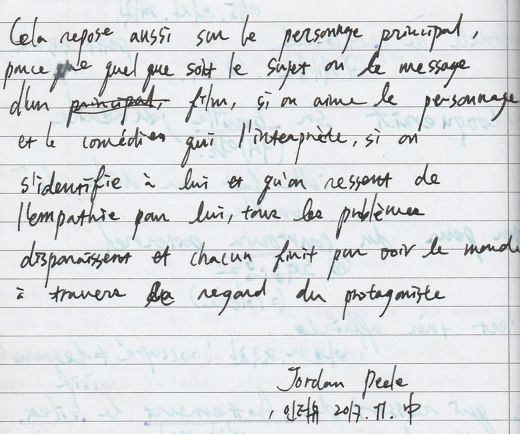 Cela repose aussi sur le personnage principal,
parce que quel que soit le sujet ou le message
d'un principal, film, si on aime le personnage
et le comédien qui l'interprète, si on
s'identifie à lui et qu'on ressent de
l'empathie pour lui, tous les problèmes
disparaissent et chacun finit par voir le monde
à travers le regard du protagoniste
Jordan Peele
2017. 11.